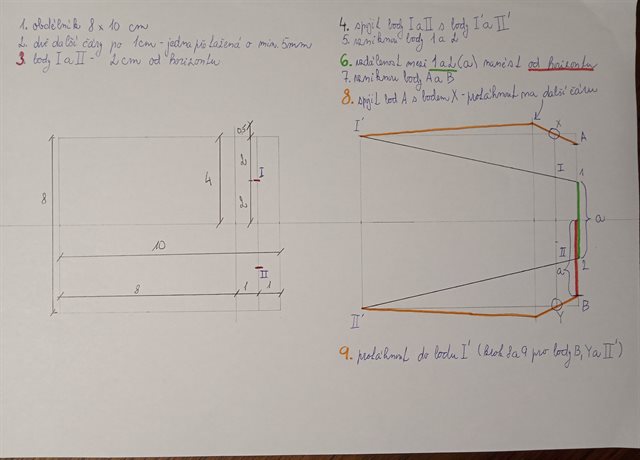 1. obdélník 8 x 10 cm
2. dvě další čáry po 1cm - jedna přetažená o min. 5mm
3. body I a II - 2cm od horizontu
4. spojit body I a II s body I' a II'
5. vzniknou body 1 a 2
6. vzdálenost mezi 1 a 2 (a) nanést od horizontu
7. vzniknou body A a B
8. spojit bod A s bodem X - protáhnout na další čáru
0,5
2
I
4
2
8
10
II
8
1
1
I'
X
A
I
1
a
II
2
a
B
II'
Y
9. protáhnout do bodu I' (krok 8 a 9 pro body B, Y a II')